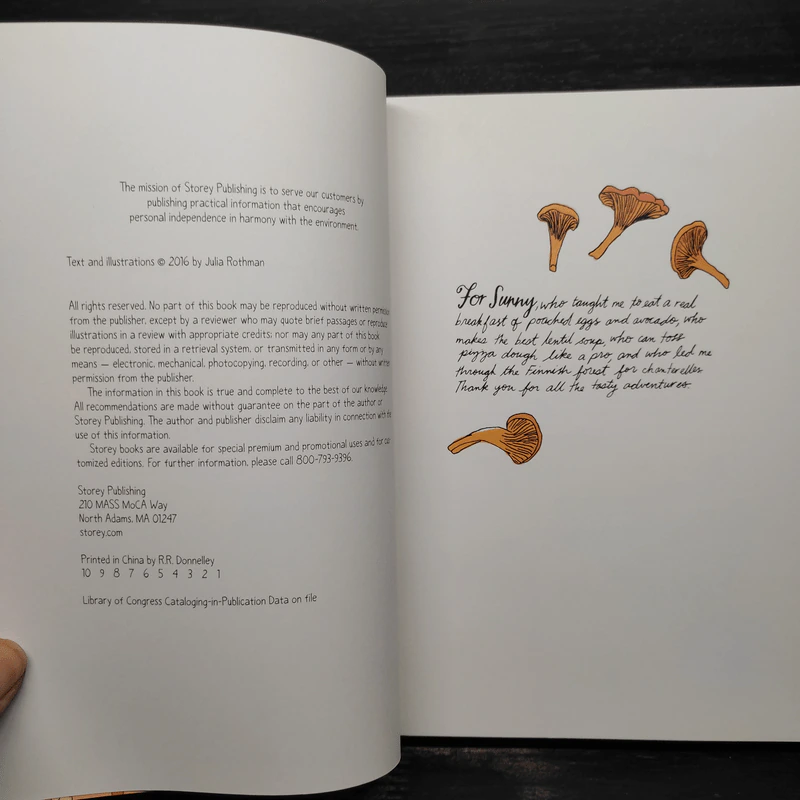 The mission of Storey Publishing is to serve our customers by
publishing practical information that encourages
personal independence in harmony with the environment.
Text and illustrations © 2016 by Julia Rothman
All rights reserved. No part of this book may be reproduced without written
from the publisher, except by a reviewer who may quote brief passages or reproduce
illustrations in a review with appropriate credits; nor may any part of this book
be reproduced, stored in a retrieval system, or transmitted in any form or by any
means — electronic, mechanical, photocopying, recording, or other — without written
permission from the publisher.
The information in this book is true and complete to the best of our knowledge.
All recommendations are made without guarantee on the part of the author or
Storey Publishing. The author and publisher disclaim any liability in connection with the
use of this information.
Storey books are available for special premium and promotional uses and for
tomized editions. For further information, please call 800-793-9396.
Storey Publishing
210 MASS MoCA Way
North Adams, MA 01247
storey.com
Printed in China by R.R. Donnelley
10 9 8 7 6 5 4 3 2 1
Library of Congress Cataloging-in-Publication Data on file
For Sunny, who taught me to eat a real
breakfast of poached eggs and avocado, who
makes the best lentil soup, who can toss
pizza dough like a pro, and who led me
through the Finnish forest for chanterelles.
Thank you for all the tasty adventures.